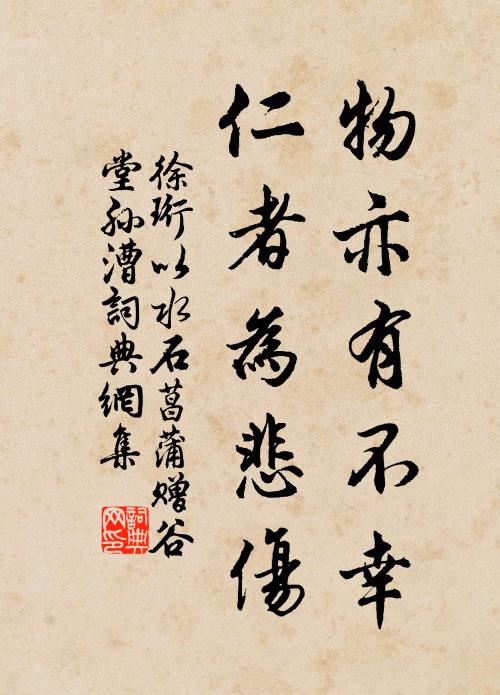 物亦有不幸
仁者為悲傷
徐珩以水石菖蒲贈谷
堂孙漕詞典網集
詞典
网印